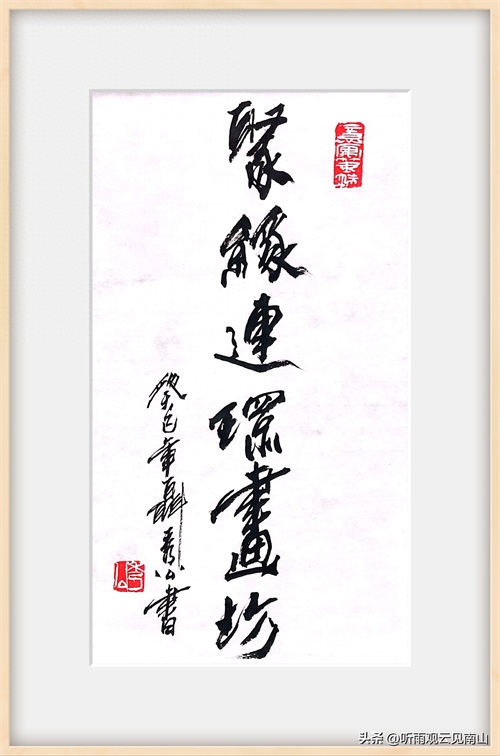 聚緣連環畫坊
癸巳年聶秀公書
秀公
头条 @听雨观云见南山